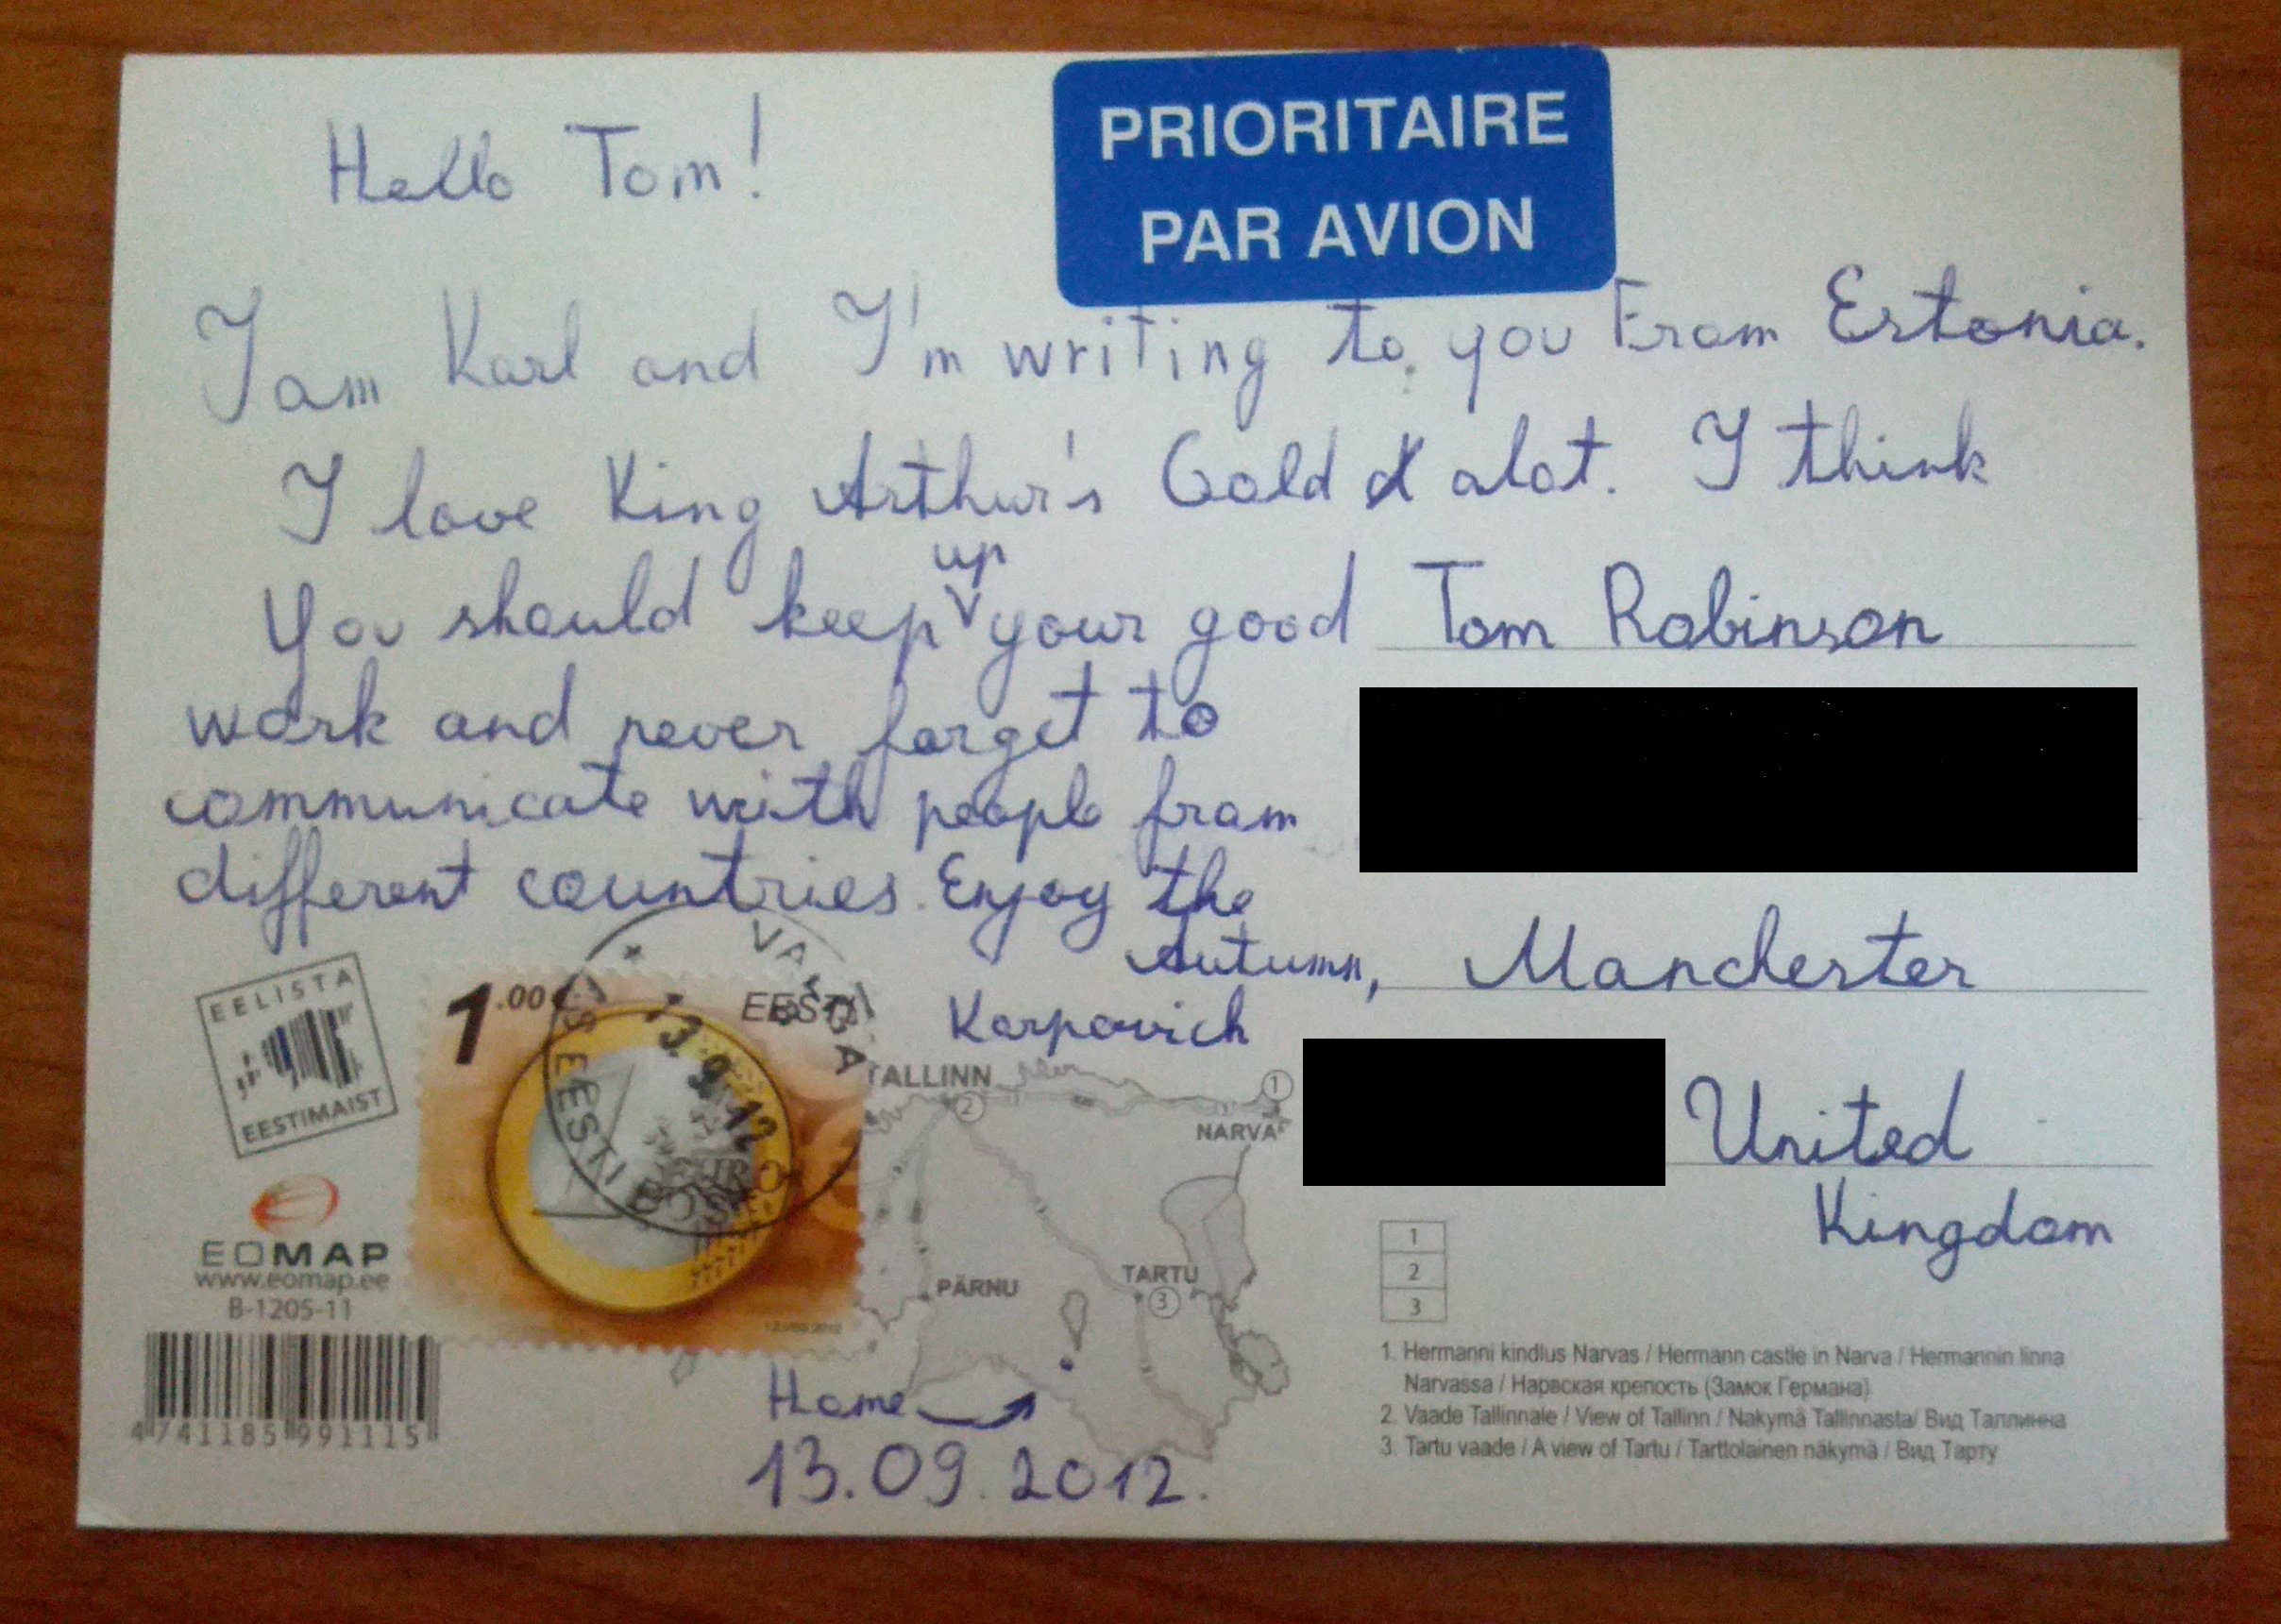 PRIORITAIRE
PAR AVION
Hello Tom!
I am Karl and I'm writing to you From Estonia.
I love King Arthur's Gold alot. I think
You should keep up your good
work and never forget to
communicate with people from
different countries. Enjoy the
Autumn,
Karpovich
Tom Robinson
Manchester
United
Kingdom
EELISTA
EESTIMAIST
1.00€
EESTI
VALGA
13.9.12
EESTI POST
EOMAP
www.eomap.ee
B-1205-11
4741185991115
TALLINN
2
1
NARVA
PÄRNU
TARTU
3
Home
13.09.2012.
1
2
3
1. Hermanni kindlus Narvas / Hermann castle in Narva / Hermannin linna
Narvassa / Нарвская крепость (Замок Германа)
2. Vaade Tallinnale / View of Tallinn / Näkymä Tallinnasta/ Вид Таллинна
3. Tartu vaade / A view of Tartu / Tarttolainen näkymä / Вид Тарту